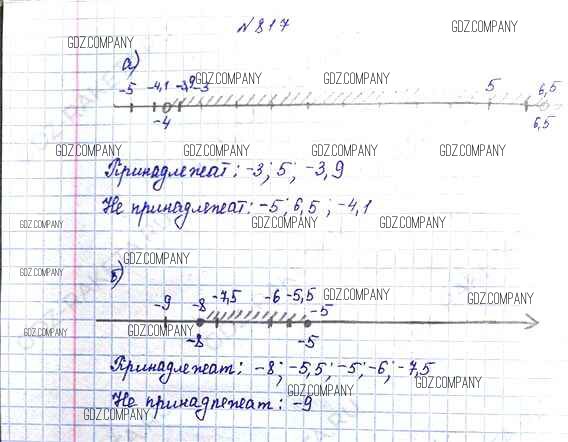 № 817
GDZ.COMPANY
GDZ.COMPANY
а)
GDZ.COMPANY
GDZ.COMPANY
-5 -4,1 -3,9 -3 5 6,5
-4 6,5
GDZ.COMPANY GDZ.COMPANY GDZ.COMPANY GDZ.COMPANY
Принадлежат: -3; 5; -3,9
Не принадлежат: -5; 6,5; -4,1
GDZ.COMPANY GDZ.COMPANY GDZ.COMPANY
GDZ.COMPANY
GDZ.COMPANY
б)
GDZ.COMPANY GDZ.COMPANY
-9 -8 -7,5 -6 -5,5 -5
GDZ.COMPANY GDZ.COMPANY
-8 -5
Принадлежат: -8; -5,5; -5; -6; -7,5
GDZ.COMPANY GDZ.COMPANY
Не принадлежат: -9
GDZ.COMPANY